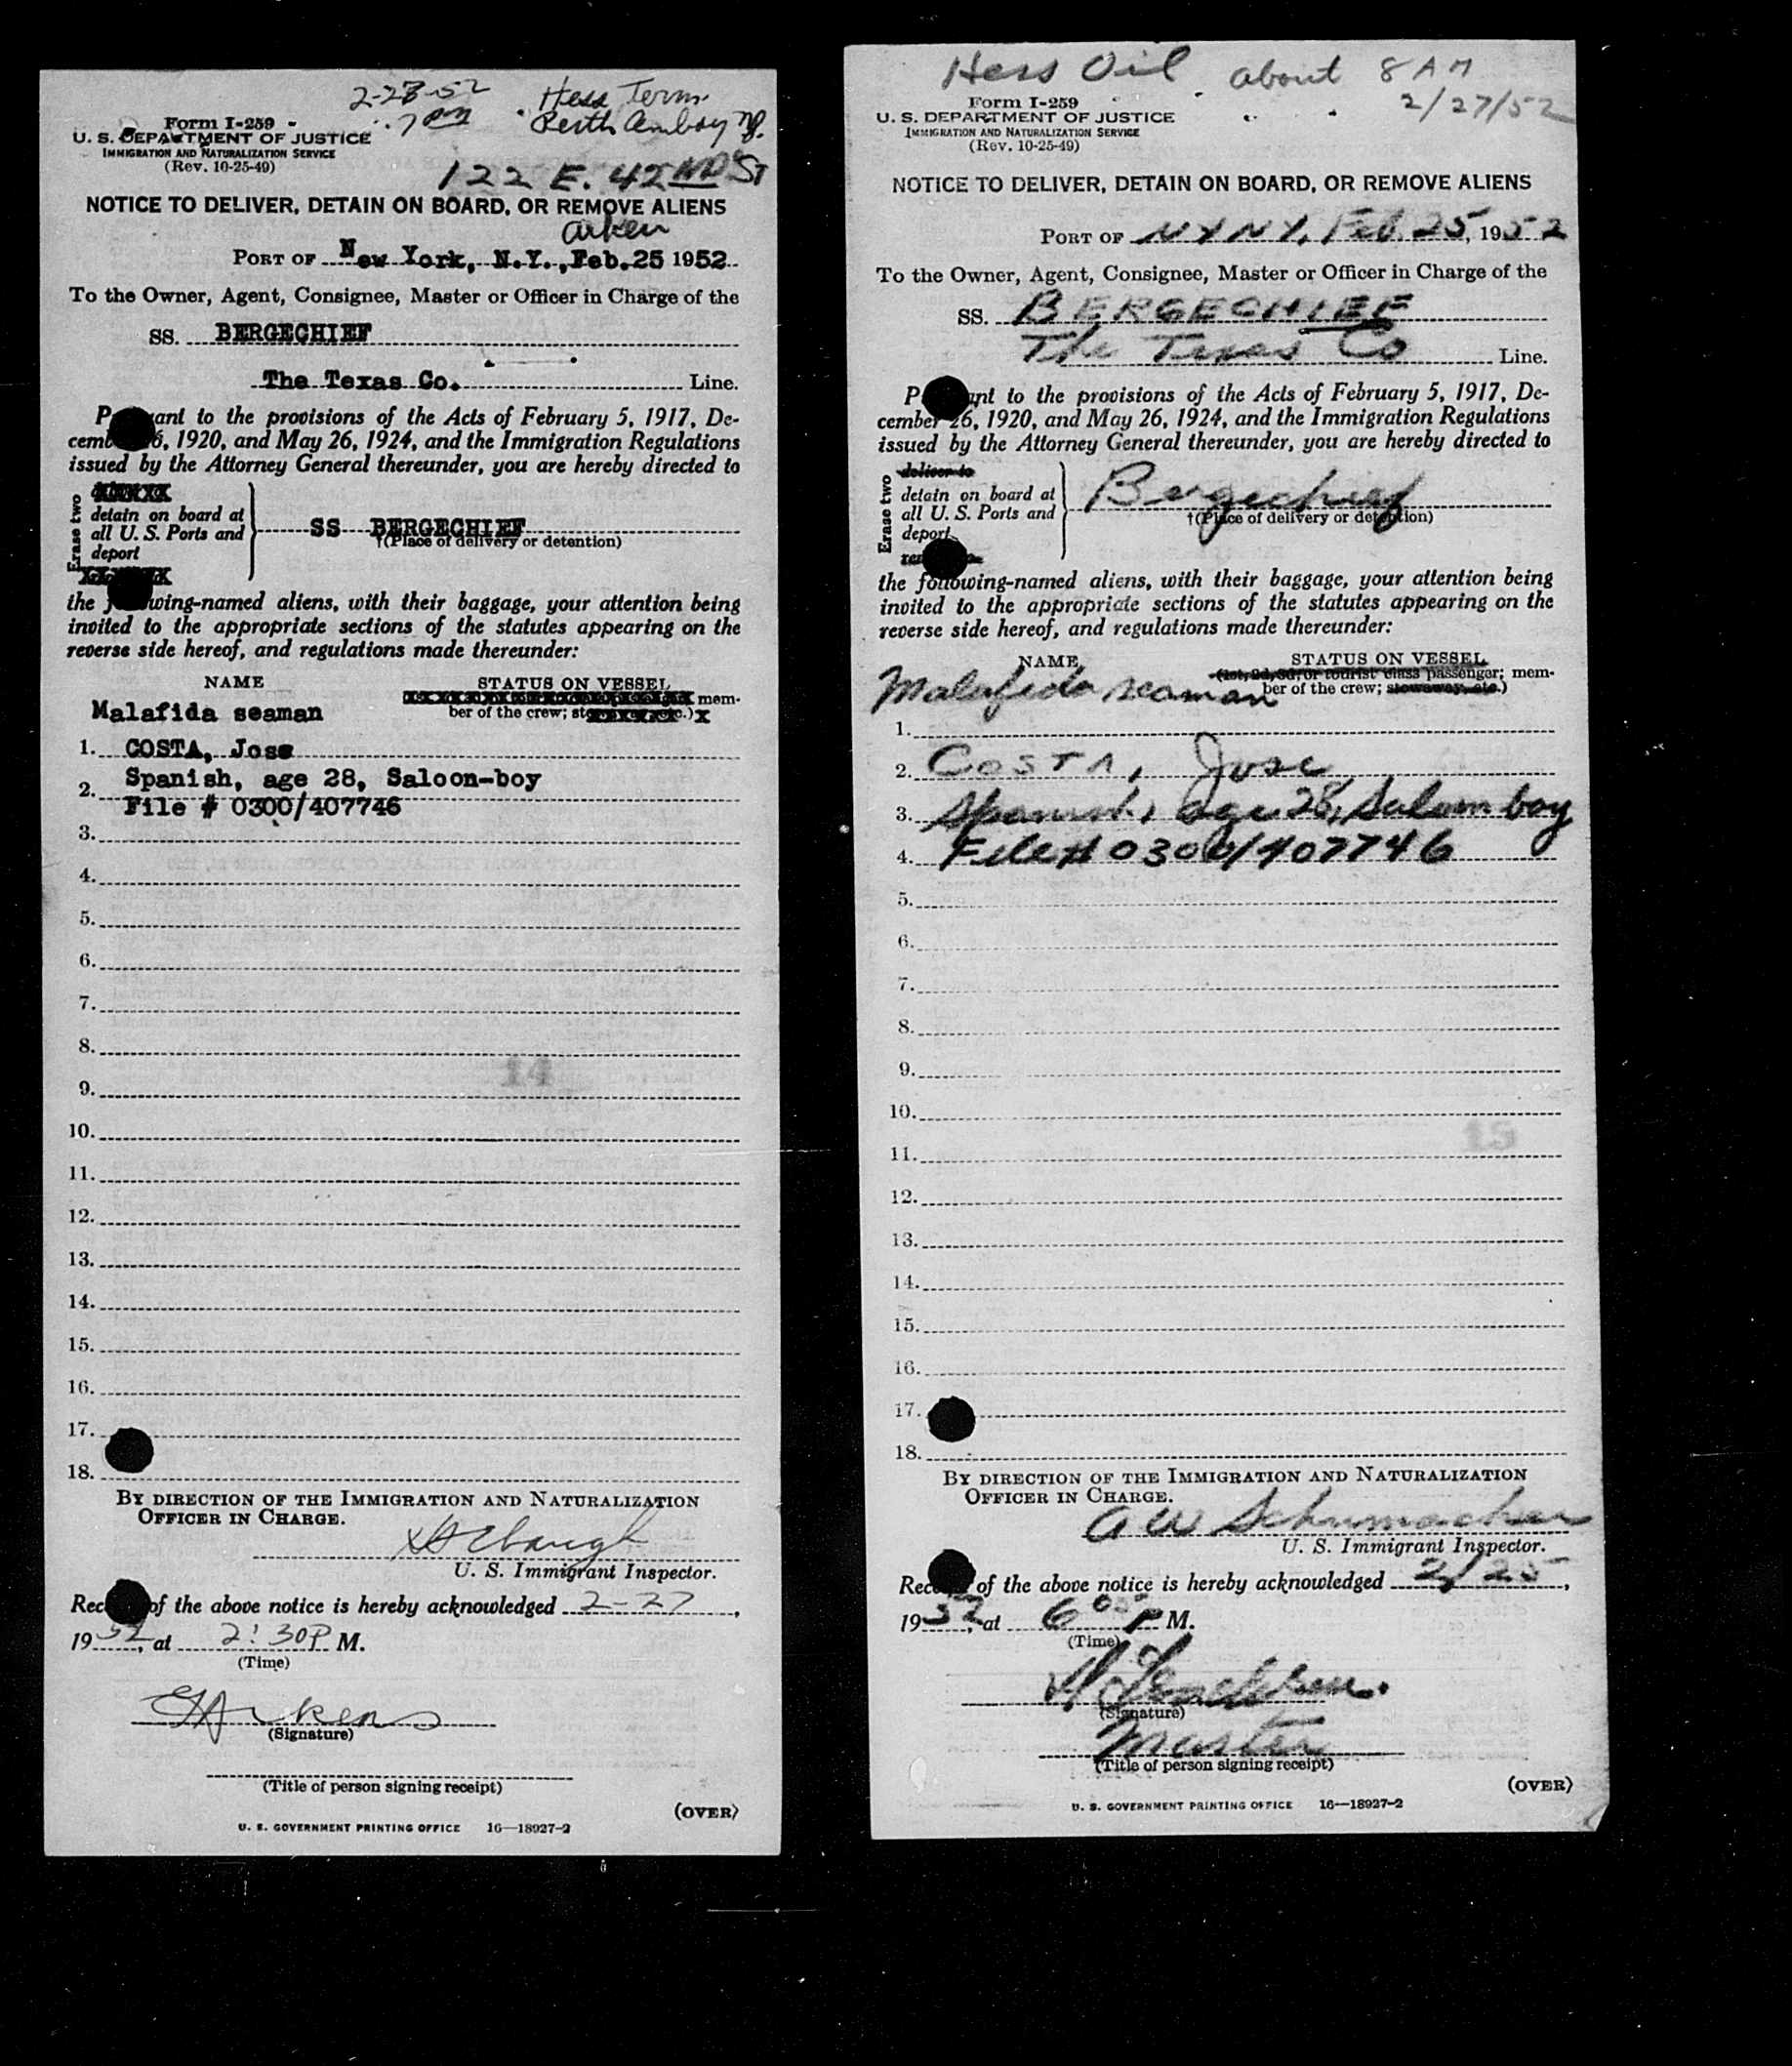 2-28-52 Hess Term.
7 PM Perth Amboy NJ.
Form I-259
U. S. DEPARTMENT OF JUSTICE
IMMIGRATION AND NATURALIZATION SERVICE
(Rev. 10-25-49)
122 E. 42ND ST
NOTICE TO DELIVER, DETAIN ON BOARD, OR REMOVE ALIENS
arken
PORT OF New York, N.Y., Feb.25 1952
To the Owner, Agent, Consignee, Master or Officer in Charge of the
SS. BERGECHIEF
The Texas Co. Line.
P ant to the provisions of the Acts of February 5, 1917, De-
cem 6, 1920, and May 26, 1924, and the Immigration Regulations
issued by the Attorney General thereunder, you are hereby directed to
Erase two
detain on board at
all U. S. Ports and
deport
SS BERGECHIEF
†(Place of delivery or detention)
the f wing-named aliens, with their baggage, your attention being
invited to the appropriate sections of the statutes appearing on the
reverse side hereof, and regulations made thereunder:
NAME STATUS ON VESSEL
mem-
Malafida seaman ber of the crew; st c.) x
1. COSTA, Jose
Spanish, age 28, Saloon-boy
2.
File # 0300/407746
3.
4.
5.
6.
7.
8.
14
9.
10.
11.
12.
13.
14.
15.
16.
17.
18.
BY DIRECTION OF THE IMMIGRATION AND NATURALIZATION
OFFICER IN CHARGE.
U. S. Immigrant Inspector.
Rec of the above notice is hereby acknowledged 2-27,
1952, at 2:30P M.
(Time)
Arkens
(Signature)
(Title of person signing receipt)
(OVER)
U. S. GOVERNMENT PRINTING OFFICE 16—18927-2
Hess Oil about 8 AM
2/27/52
Form I-259
U. S. DEPARTMENT OF JUSTICE
IMMIGRATION AND NATURALIZATION SERVICE
(Rev. 10-25-49)
NOTICE TO DELIVER, DETAIN ON BOARD, OR REMOVE ALIENS
PORT OF NY NY, Feb. 25, 1952
To the Owner, Agent, Consignee, Master or Officer in Charge of the
SS. BERGECHIEF
The Texas Co Line.
P ant to the provisions of the Acts of February 5, 1917, De-
cember 26, 1920, and May 26, 1924, and the Immigration Regulations
issued by the Attorney General thereunder, you are hereby directed to
Erase two
deliver to
detain on board at
all U. S. Ports and
deport
Bergechief
†(Place of delivery or detention)
the following-named aliens, with their baggage, your attention being
invited to the appropriate sections of the statutes appearing on the
reverse side hereof, and regulations made thereunder:
NAME STATUS ON VESSEL
(1st, 2d, 3d, or tourist class passenger; mem-
Malafida seaman ber of the crew; stowaway, etc.)
1.
2. COSTA, Jose
3. Spanish, age 28, Saloon boy
4. File # 0300/407746
5.
6.
7.
8.
9.
10.
15
11.
12.
13.
14.
15.
16.
17.
18.
BY DIRECTION OF THE IMMIGRATION AND NATURALIZATION
OFFICER IN CHARGE.
A W Schumacher
U. S. Immigrant Inspector.
Rec of the above notice is hereby acknowledged 2/25,
1952, at 6 00 P M.
(Time)
(Signature)
Master
(Title of person signing receipt)
(OVER)
U. S. GOVERNMENT PRINTING OFFICE 16—18927-2